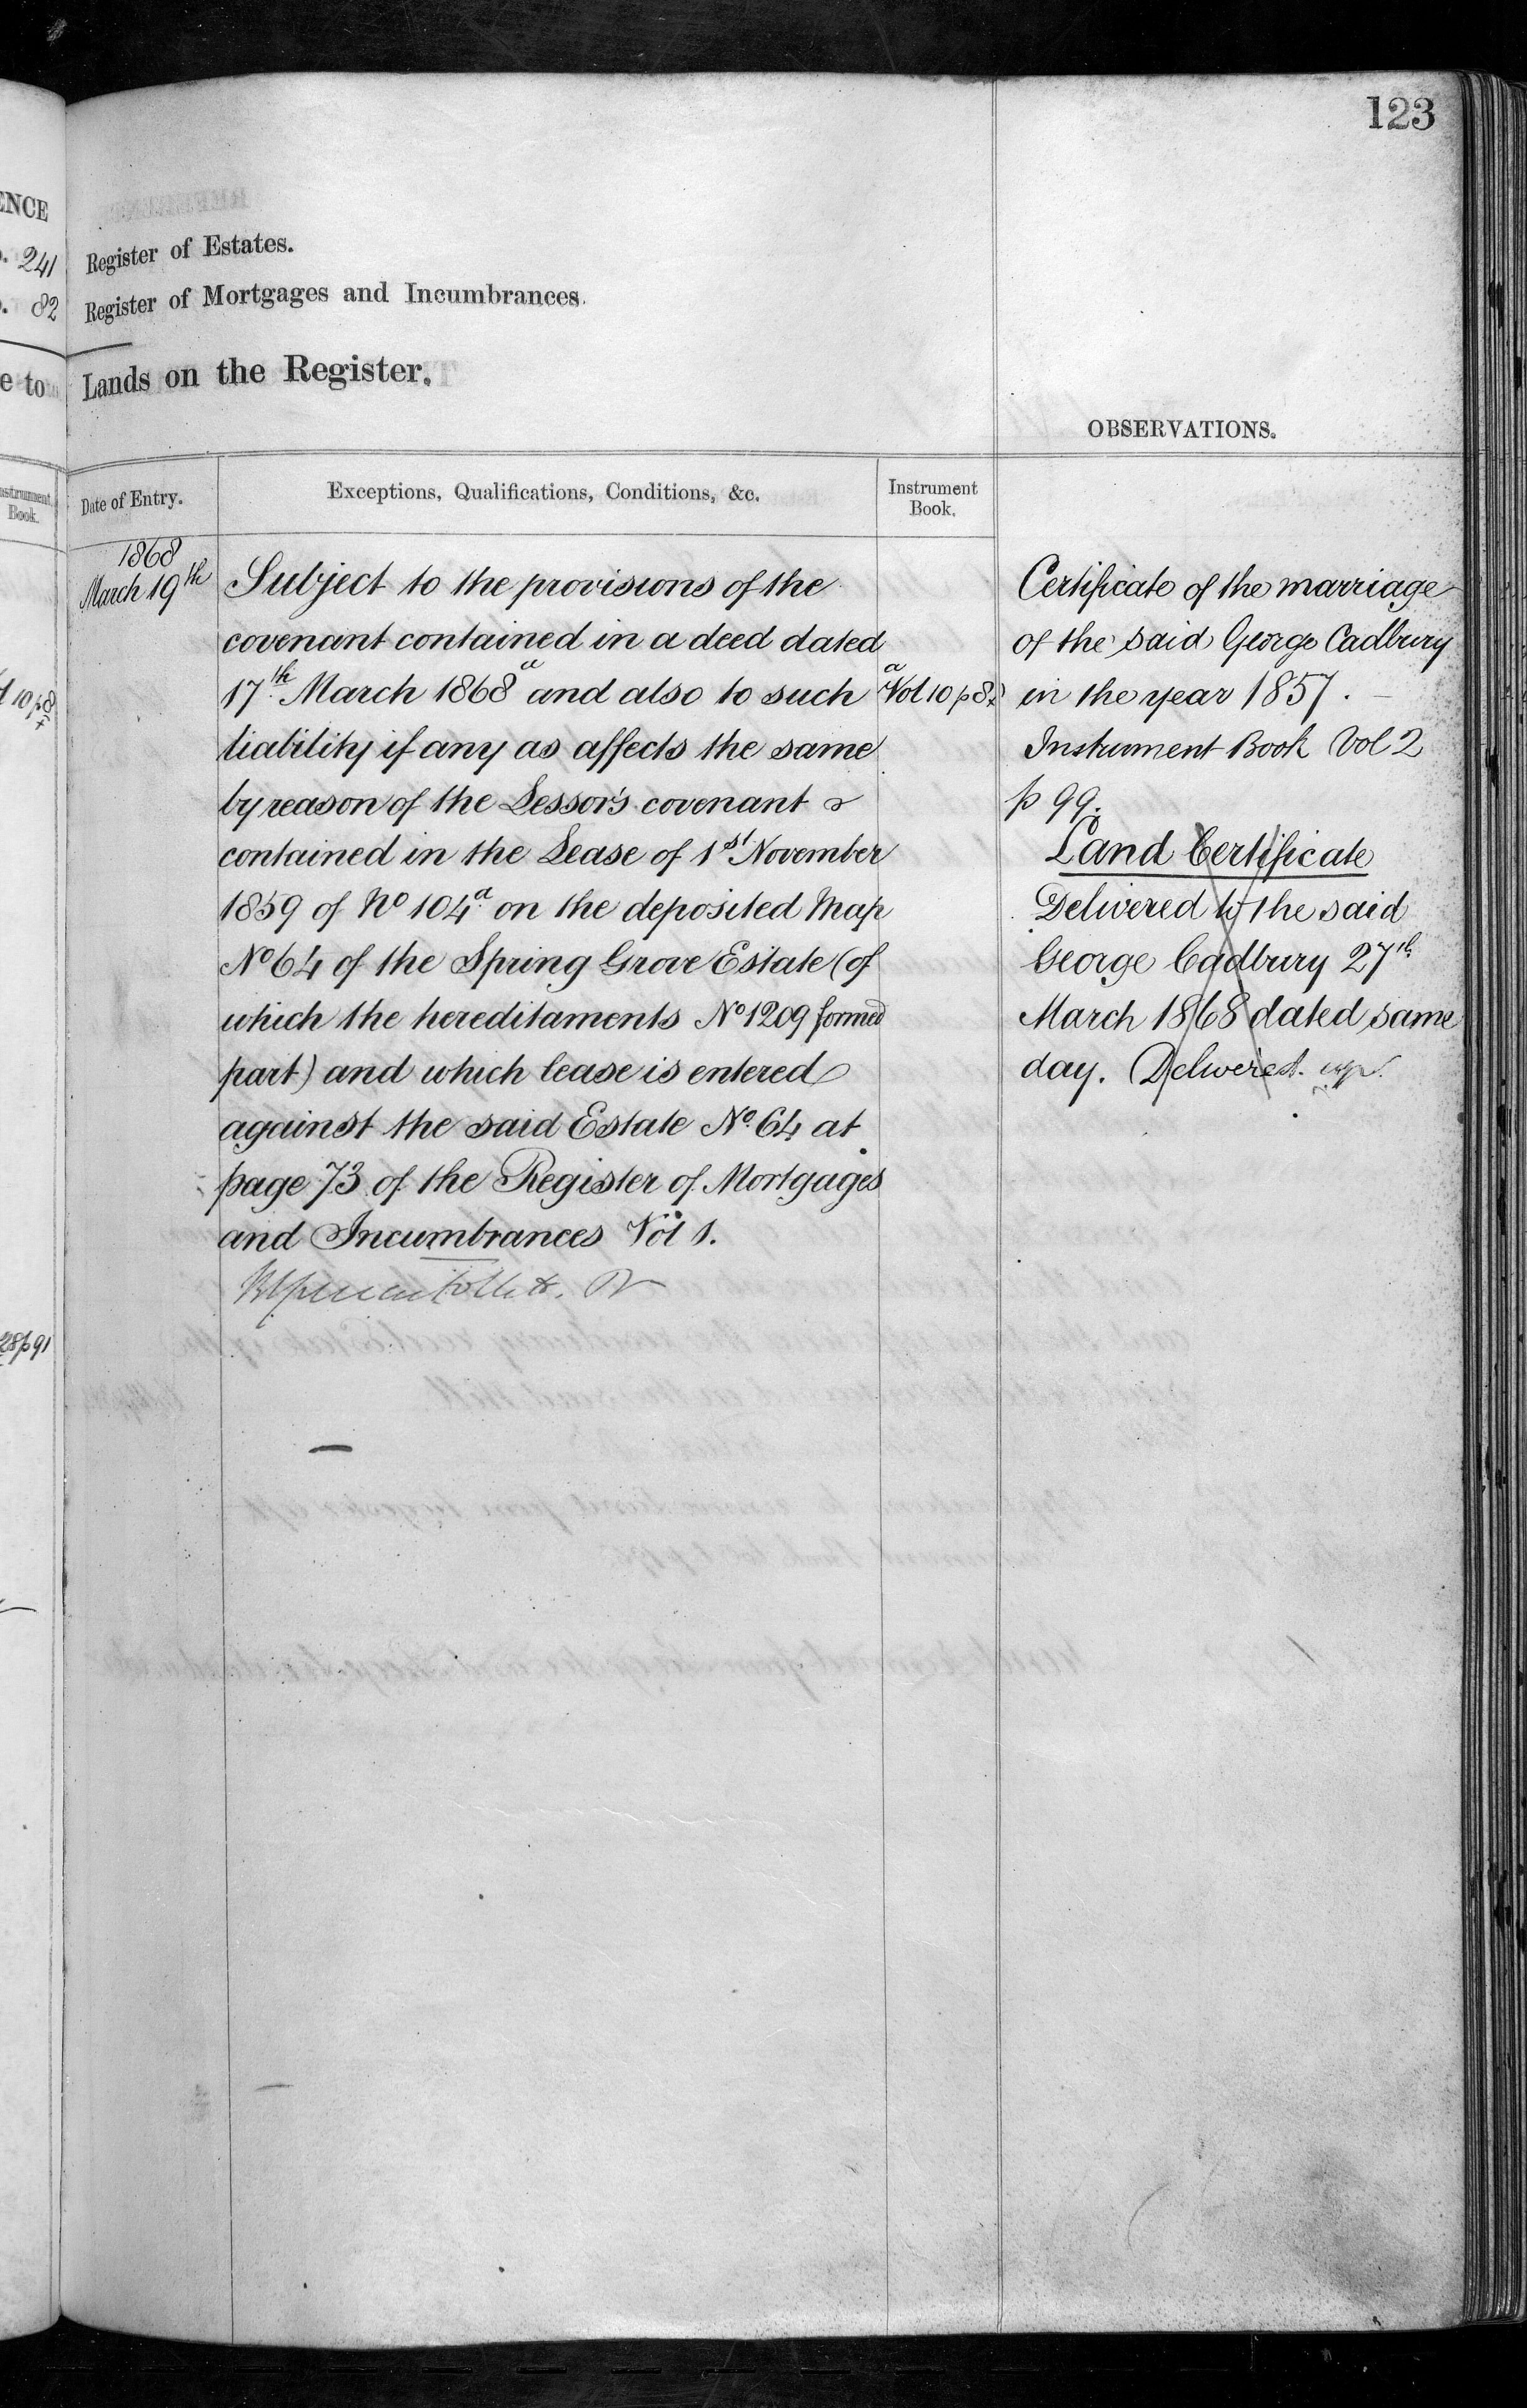 123
ENCE
241
82
e to
Register of Estates.
Register of Mortgages and Incumbrances.
Lands on the Register.
OBSERVATIONS.
Instrument
Book.
Date of Entry.
Exceptions, Qualifications, Conditions, &c.
Instrument
Book.
1868
March 19th
Subject to the provisions of the
covenant contained in a deed dated
17th March 1868 a and also to such
liability if any as affects the same
by reason of the Lessor's covenant
contained in the Lease of 1st November
1859 of No 104a on the deposited Map
No 64 of the Spring Grove Estate (of
which the hereditaments No 1209 formed
part) and which lease is entered
against the said Estate No. 64 at
page 73 of the Register of Mortgages
and Incumbrances Vol 1.
a
Vol 10 p 8
Certificate of the marriage
of the said George Cadbury
in the year 1857.
Instrument Book Vol 2
p 99.
Land Certificate
Delivered to the said
George Cadbury 27th
March 1868 dated same
day. Delivered.
10 p 8
28 p 91